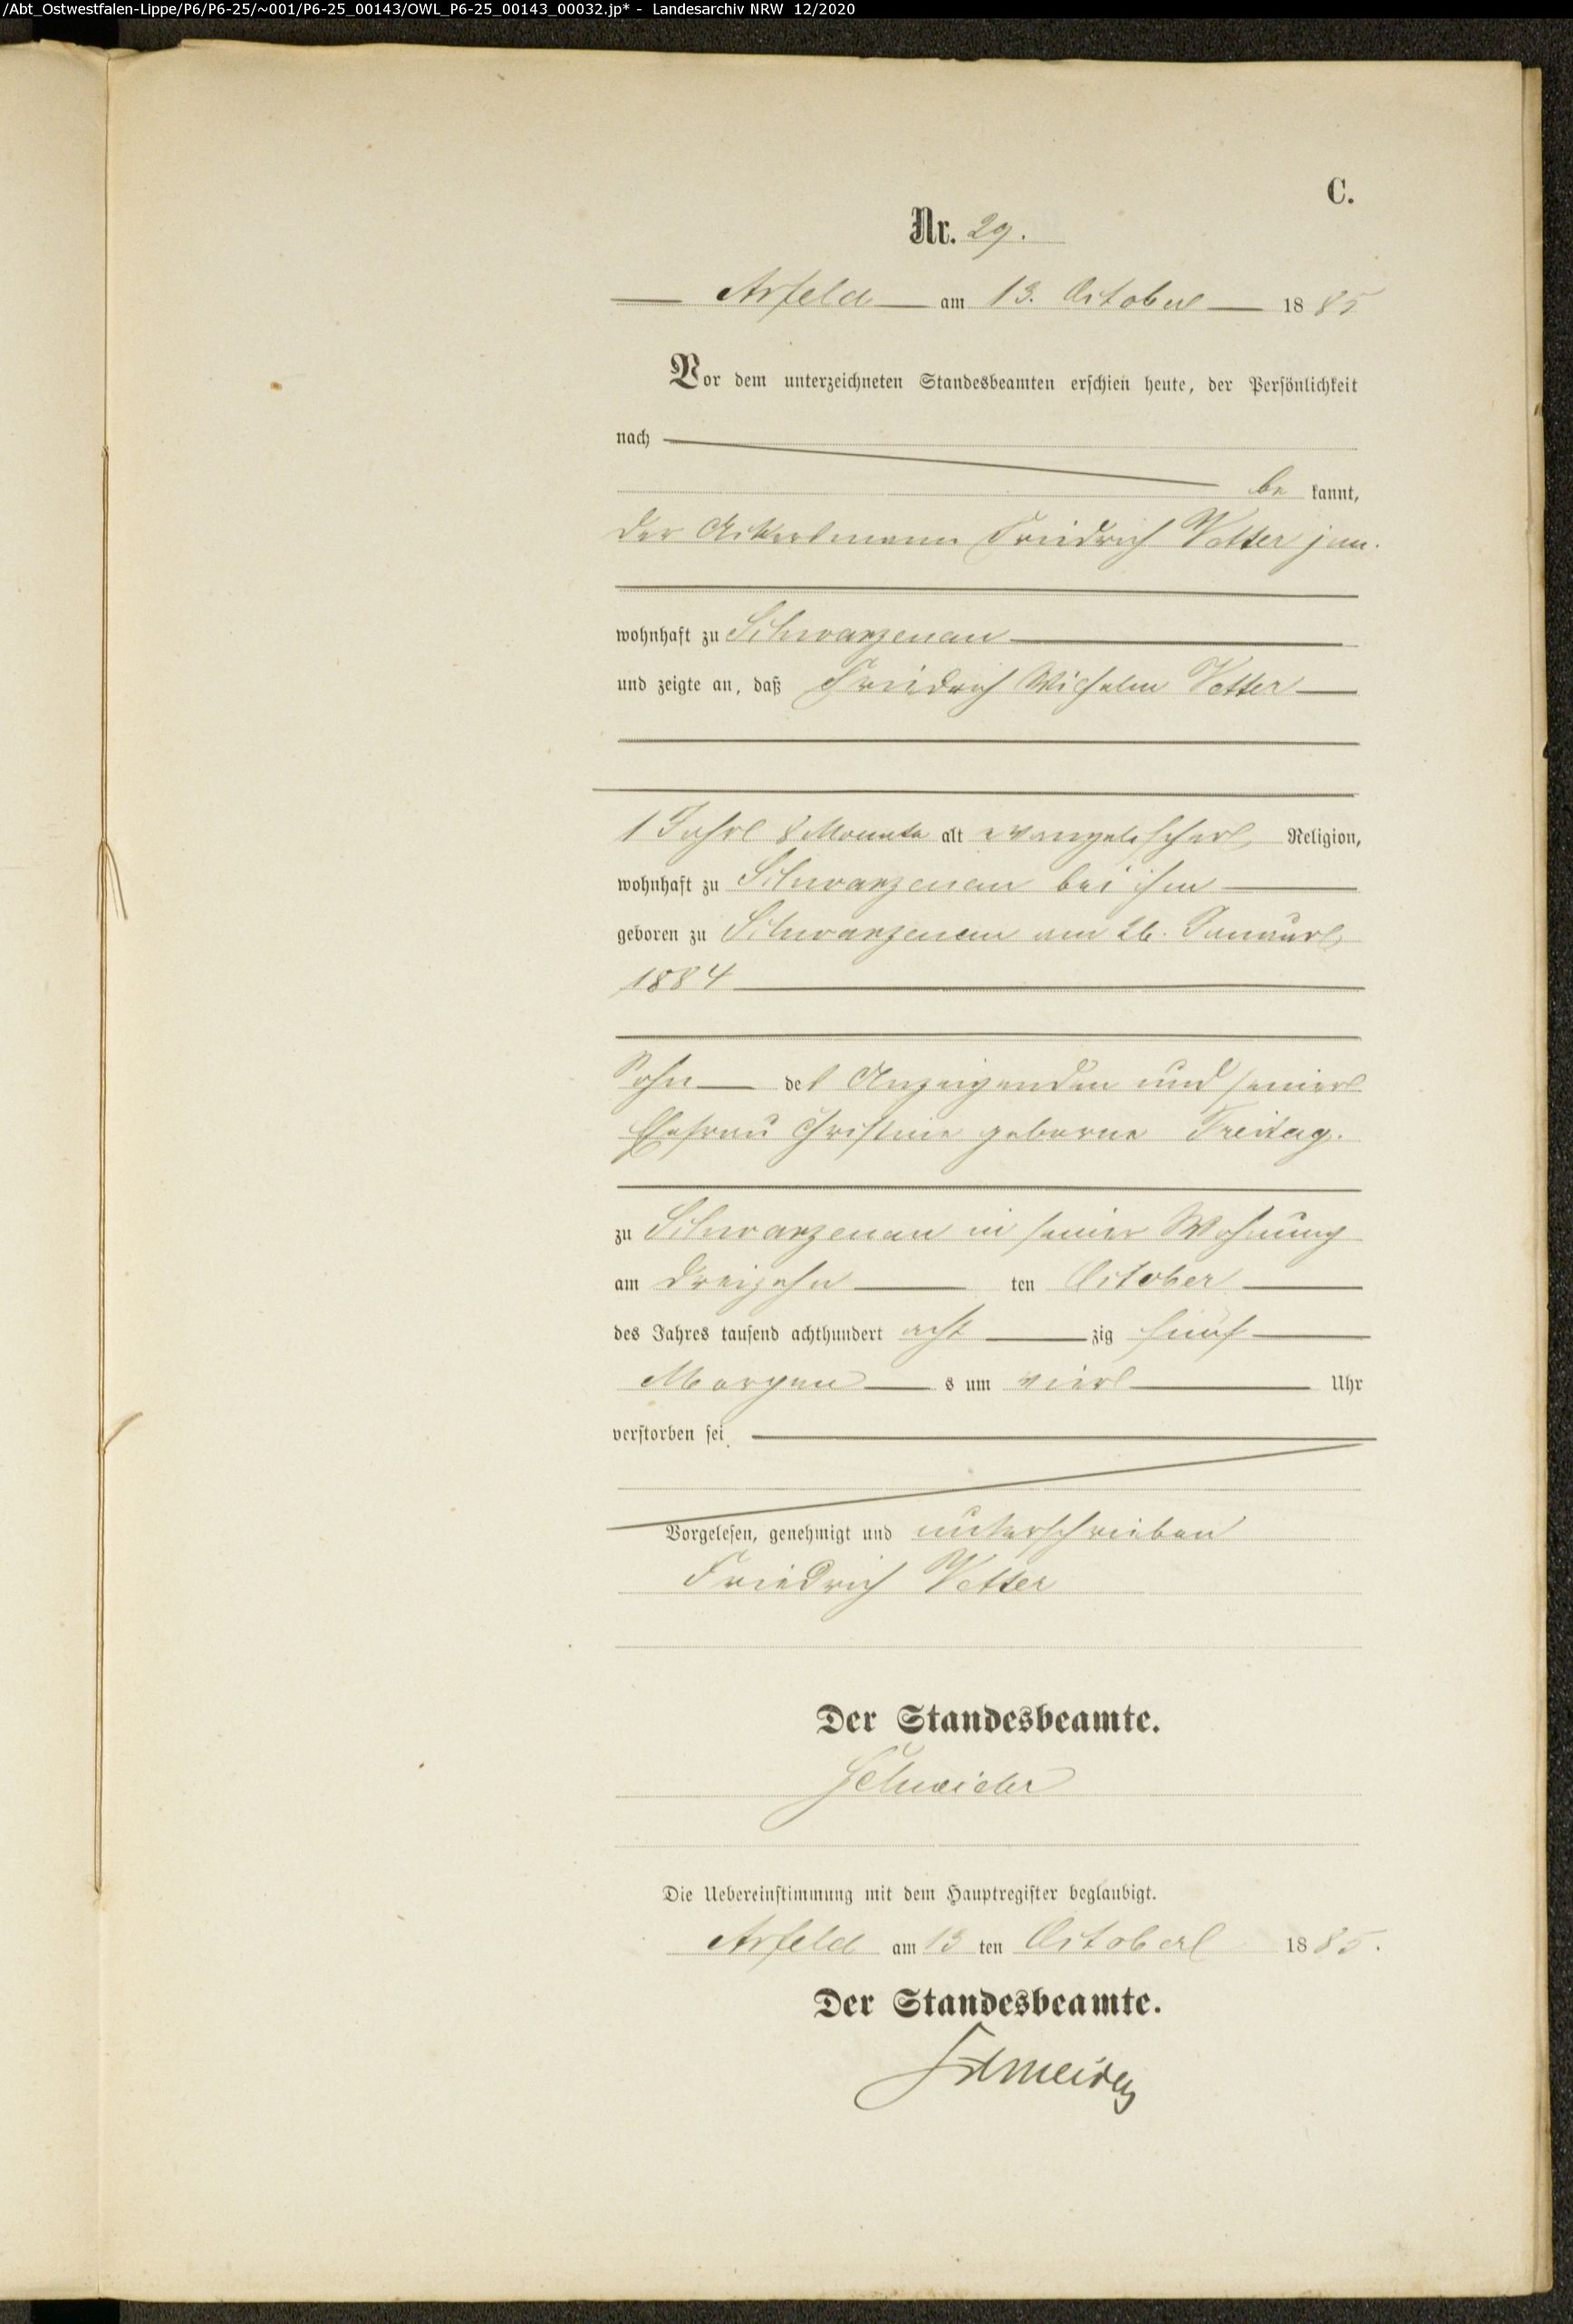 /Abt_Ostwestfalen-Lippe/P6/P6-25/~001/P6-25_00143/OWL_P6-25_00143_00032.jp* - Landesarchiv NRW 12/2020
C.
Nr. 29.
Arfeld am 13. October 1885
Vor dem unterzeichneten Standesbeamten erschien heute, der Persönlichkeit
nach
be kannt,
der Ackersmann Friedrich Vetter jun.
wohnhaft zu Schwarzenau
und zeigte an, daß Friedrich Wilhelm Vetter
1 Jahr 8 Monate alt evangelischer Religion,
wohnhaft zu Schwarzenau bei ihm
geboren zu Schwarzenau am 26. Januar
1884
Sohn des Anzeigenden und seiner
Ehefrau Christine geborne Freitag.
zu Schwarzenau in seiner Wohnung
am dreizehn ten October
des Jahres tausend achthundert acht zig fünf
Morgen s um vier Uhr
verstorben sei.
Vorgelesen, genehmigt und unterschrieben
Friedrich Vetter
Der Standesbeamte.
Schneider
Die Uebereinstimmung mit dem Hauptregister beglaubigt.
Arfeld am 13 ten October 1885.
Der Standesbeamte.
Schneider